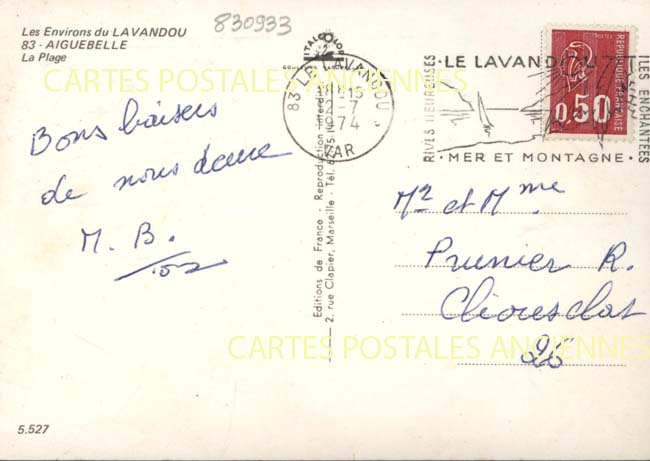 Les Environs du LAVANDOU
83 - AIGUEBELLE
La Plage
830933
CARTES POSTALES ANCIENNES
Bons baisers
de nous deux
M. B.
83 LE LAVANDOU
18H-15
2-7
1974
VAR
RIVES HEUREUSES
LE LAVANDOU
ILES ENCHANTEES
MER ET MONTAGNE
REPUBLIQUE FRANÇAISE
0,50
Editions de France - Reproduction interdite
2, rue Clapier, Marseille - Tél.
Mr et Mme
Prunier R.
Cliousclat
26
CARTES POSTALES ANCIENNES
5.527